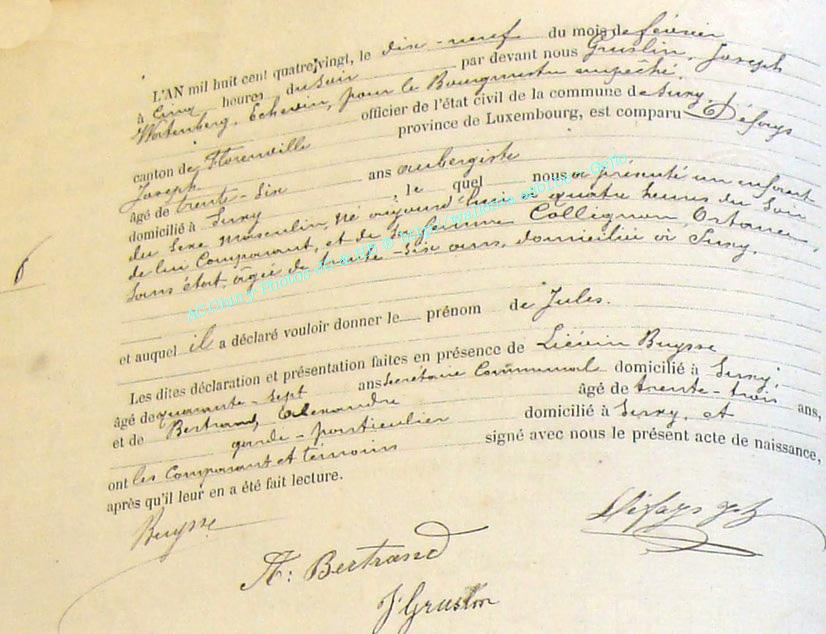 L'AN mil huit cent quatre vingt, le dix-neuf du mois de février
à cinq heures du soir par devant nous Gruslin, Joseph
Wartenberg, Echevin, pour le Bourgmestre empêché,
officier de l'état civil de la commune de Suxy,
canton de Florenville province de Luxembourg, est comparu Défays
Joseph
âgé de trente-six ans aubergiste
domicilié à Suxy, le quel nous a présenté un enfant
du sexe masculin, né aujourd'hui à quatre heures du soir
de lui Comparant, et de sa femme Collignon,
sans état, âgée de trente-six ans, domiciliée à Suxy,
et auquel il a déclaré vouloir donner le prénom de Jules.
Les dites déclaration et présentation faites en présence de Liévin Buysse
âgé de quarante-sept ans Secrétaire Communal domicilié à Suxy,
et de Bertrand, Alexandre âgé de trente-trois ans,
garde-particulier domicilié à Suxy, et
ont les Comparant et témoins signé avec nous le présent acte de naissance,
après qu'il leur en a été fait lecture.
Buysse
Défays
A: Bertrand
J Gruslin
6